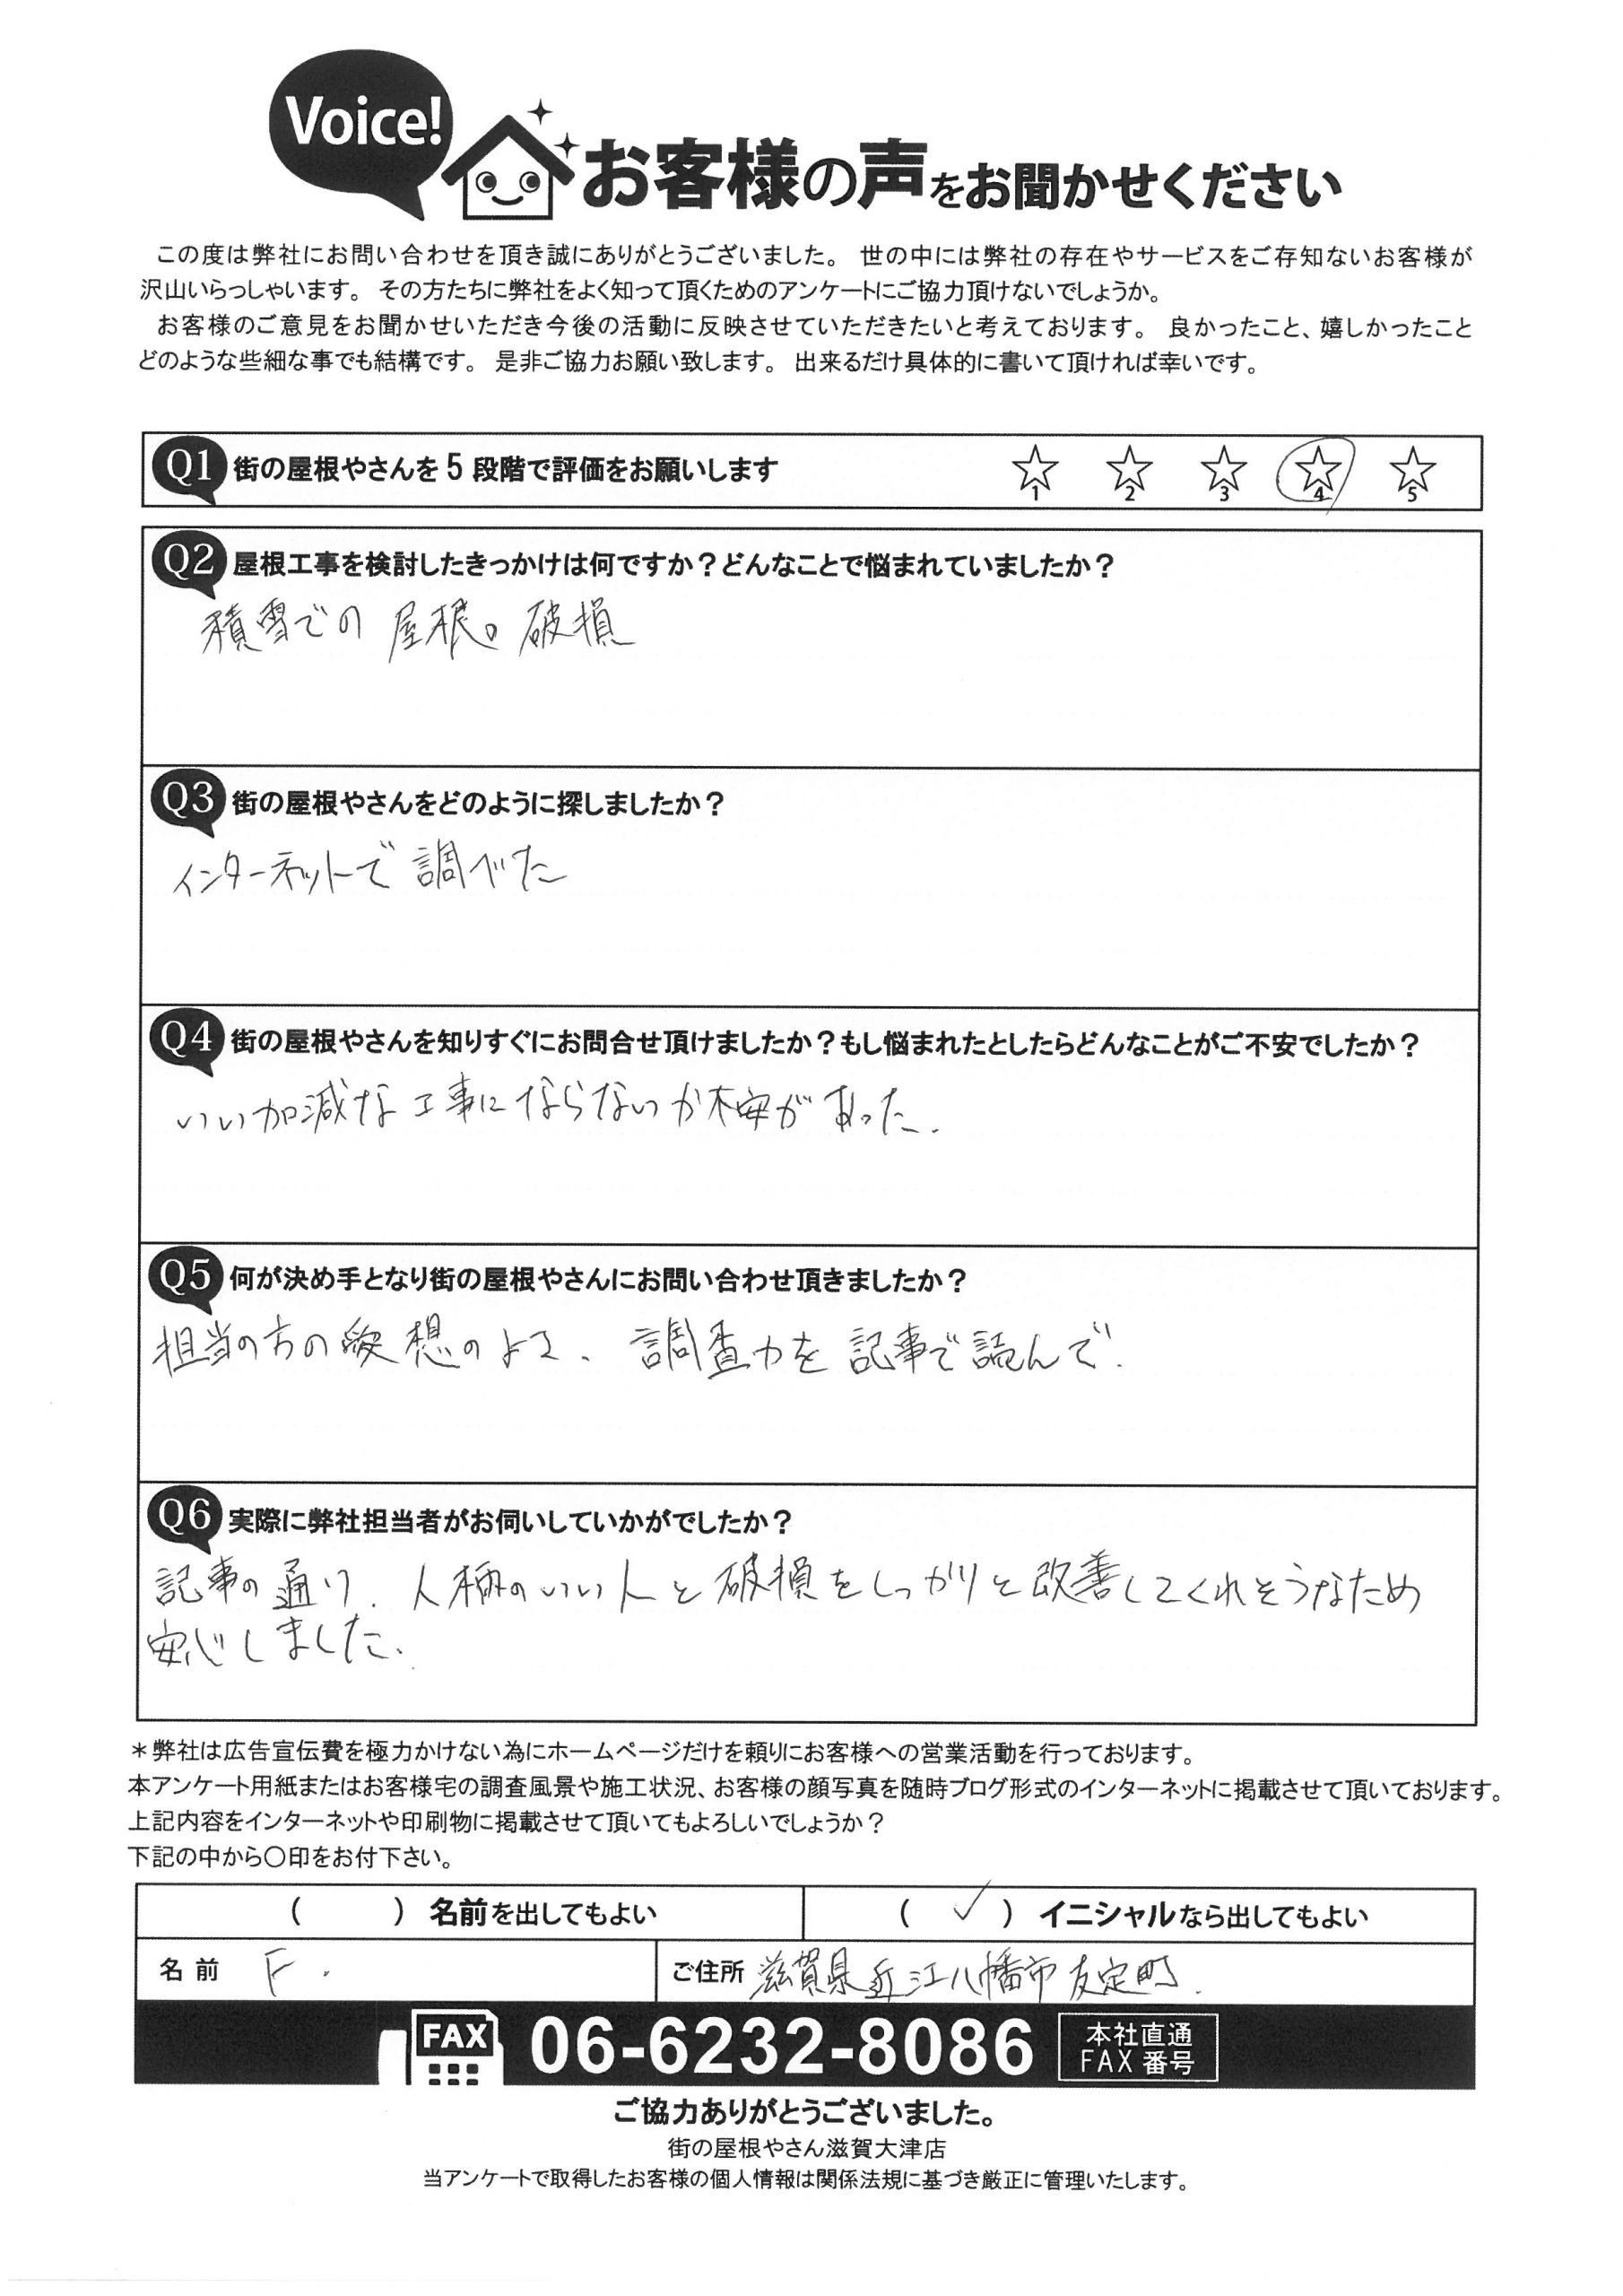 Voice!
お客様の声をお聞かせください
この度は弊社にお問い合わせを頂き誠にありがとうございました。 世の中には弊社の存在やサービスをご存知ないお客様が
沢山いらっしゃいます。 その方たちに弊社をよく知って頂くためのアンケートにご協力頂けないでしょうか。
お客様のご意見をお聞かせいただき今後の活動に反映させていただきたいと考えております。 良かったこと、嬉しかったこと
どのような些細な事でも結構です。 是非ご協力お願い致します。 出来るだけ具体的に書いて頂ければ幸いです。
Q1 街の屋根やさんを5段階で評価をお願いします ☆1 ☆2 ☆3 ☆4 ☆5
Q2 屋根工事を検討したきっかけは何ですか？どんなことで悩まれていましたか？
積雪での 屋根。破損
Q3 街の屋根やさんをどのように探しましたか？
インターネットで 調べた
Q4 街の屋根やさんを知りすぐにお問合せ頂けましたか？もし悩まれたとしたらどんなことがご不安でしたか？
いい加減な工事にならないか不安があった.
Q5 何が決め手となり街の屋根やさんにお問い合わせ頂きましたか？
担当の方の愛想のよさ、調査力を記事で読んで.
Q6 実際に弊社担当者がお伺いしていかがでしたか？
記事の通り、人柄のいい人と破損をしっかりと改善してくれそうなため
安心しました、
＊弊社は広告宣伝費を極力かけない為にホームページだけを頼りにお客様への営業活動を行っております。
本アンケート用紙またはお客様宅の調査風景や施工状況、お客様の顔写真を随時ブログ形式のインターネットに掲載させて頂いております。
上記内容をインターネットや印刷物に掲載させて頂いてもよろしいでしょうか？
下記の中から〇印をお付下さい。
（　　）名前を出してもよい （ ✓ ）イニシャルなら出してもよい
名前 F. ご住所 滋賀県近江八幡市友定町.
FAX 06-6232-8086 本社直通
FAX番号
ご協力ありがとうございました。
街の屋根やさん滋賀大津店
当アンケートで取得したお客様の個人情報は関係法規に基づき厳正に管理いたします。